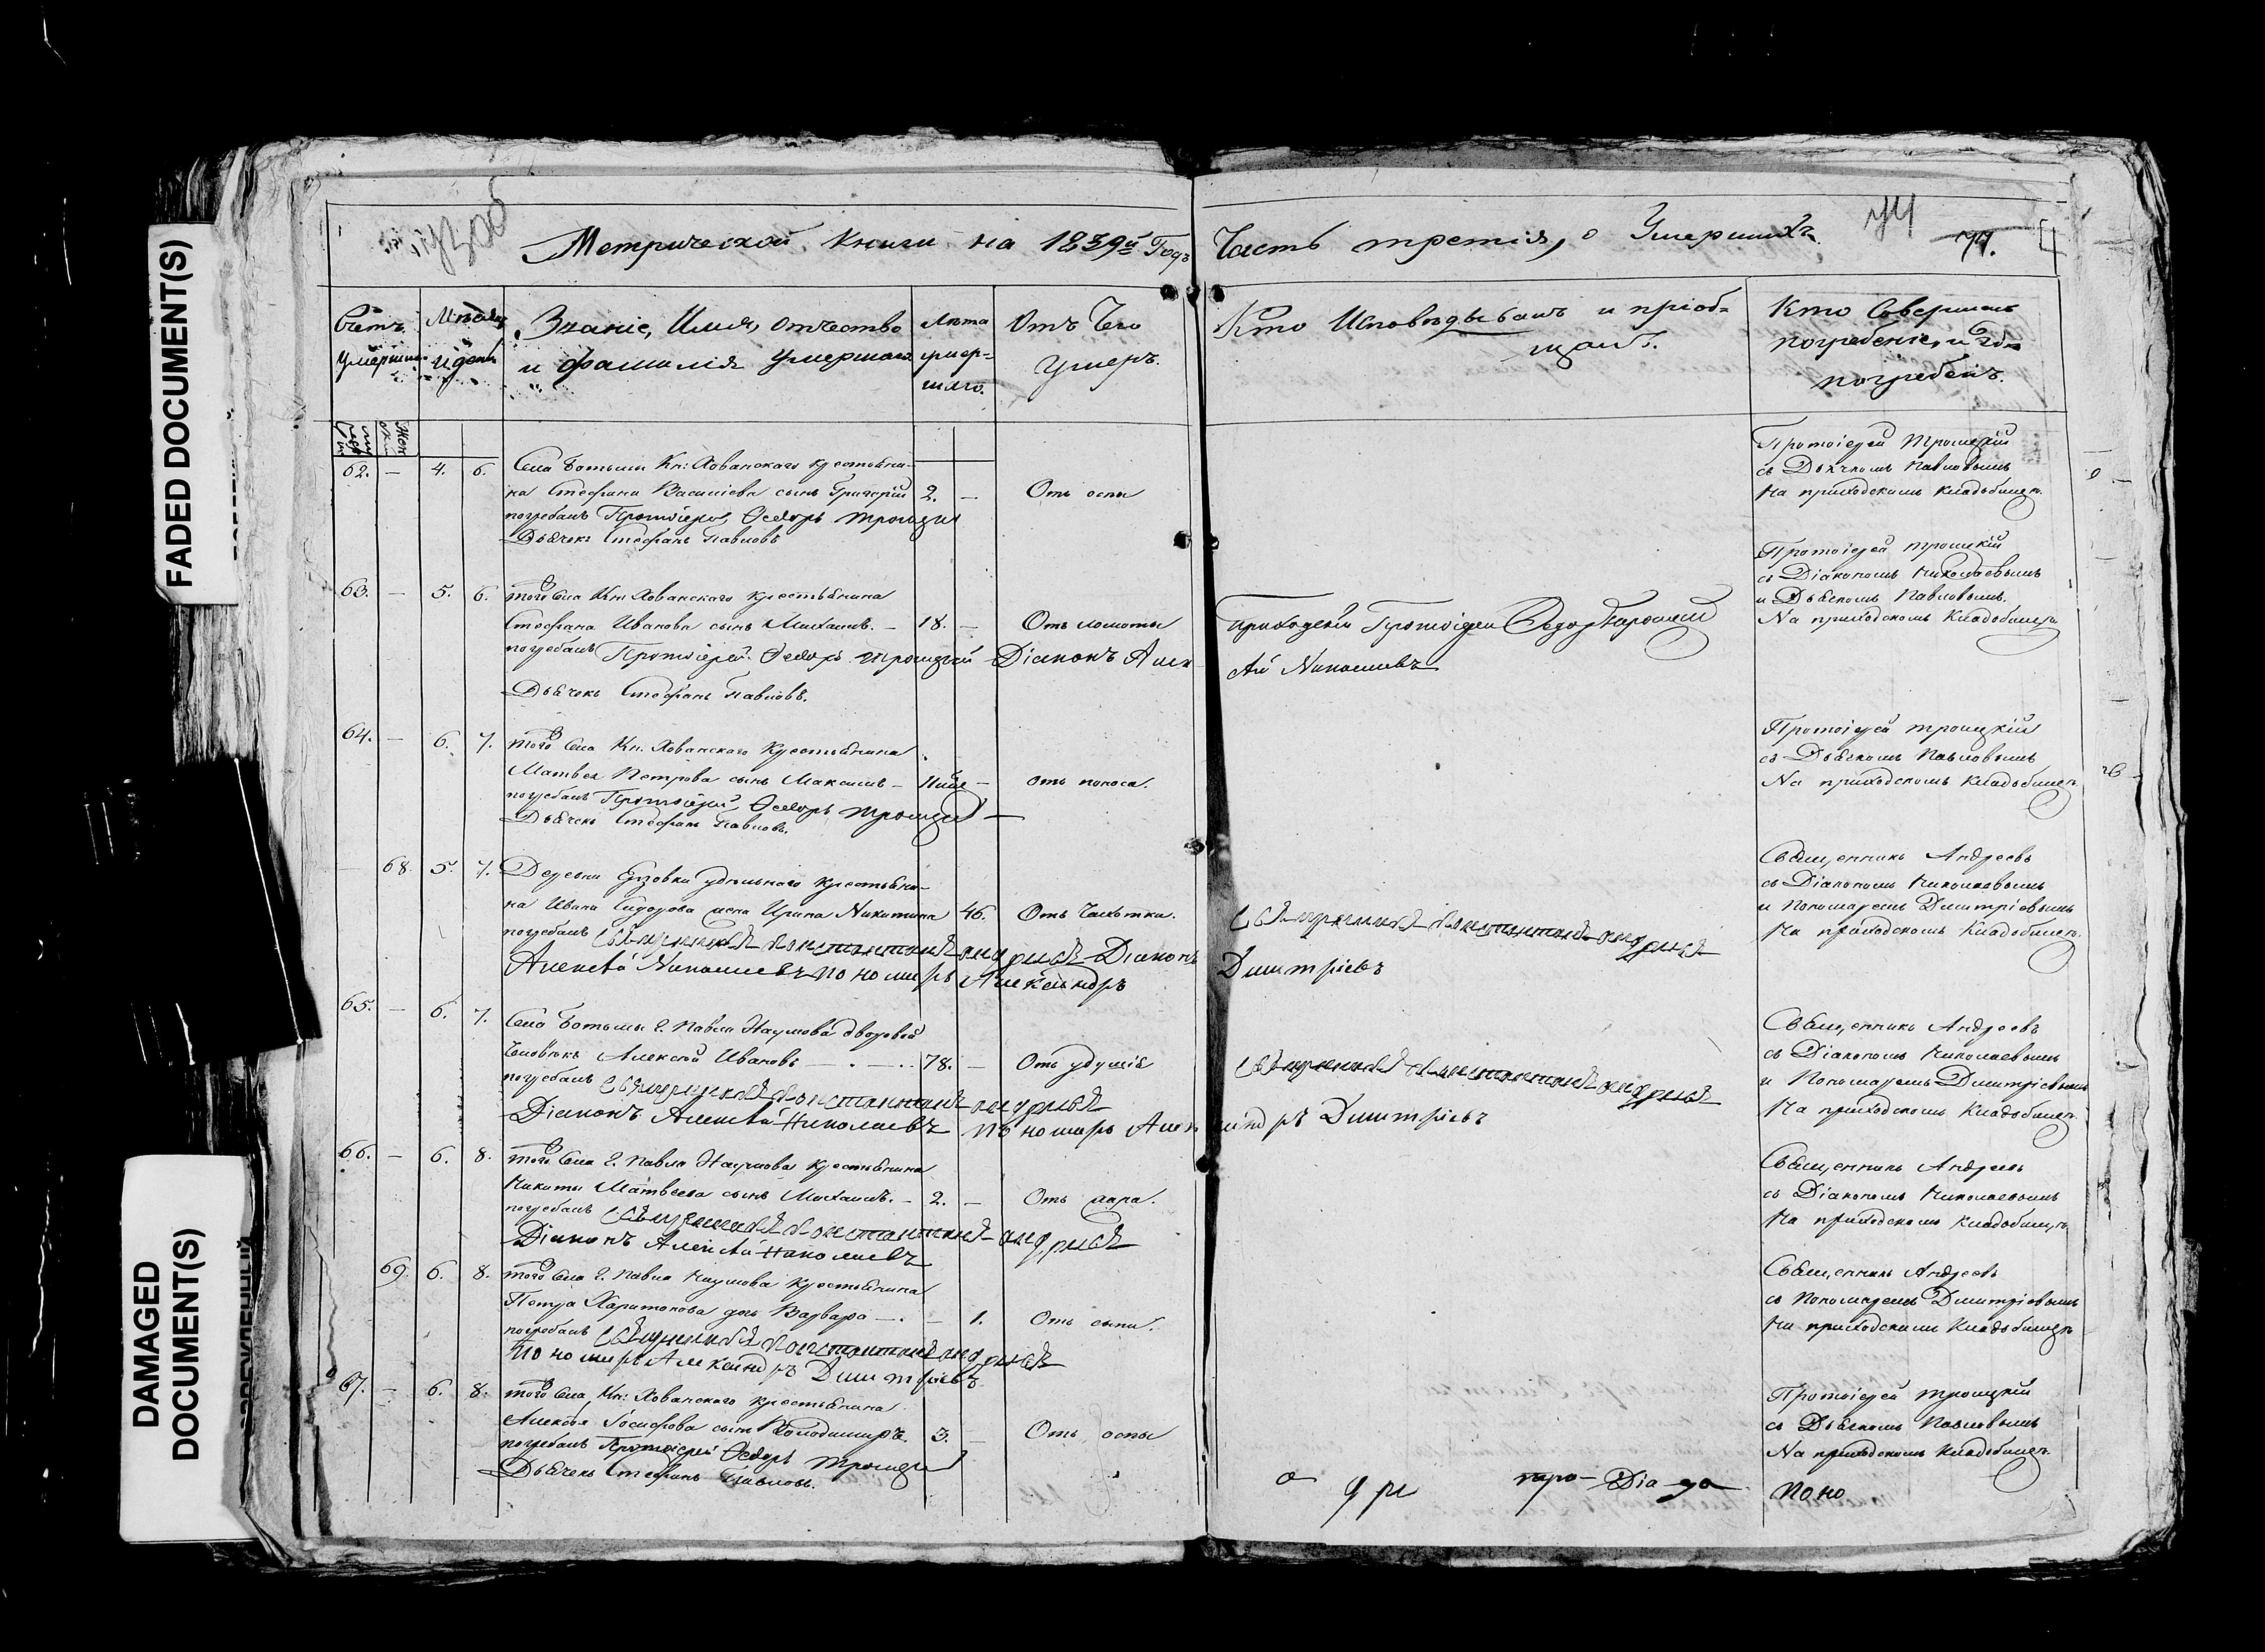 FADED DOCUMENT(S)
DAMAGED
DOCUMENT(S)
Метрической книги на 1839й Годъ Часть третія, о Умершихъ
77.
Счетъ умершихъ
Мѣсяцъ и день
Званіе, Имя, отчество
и фамилія умершаго
Лѣта
умер=
шаго.
Отъ Чего
умеръ.
Кто Исповѣдывалъ и пріоб=
щалъ.
Кто Совершалъ
погребеніе, и гдѣ
погребенъ.
62. — 4. 6. Села Ботьмы Кн: Хованскаго крестьяни-
на Стефана Василіева сынъ Григорій 2. — Отъ оспы
погребалъ Протоіерей Ѳеодоръ Троицкій
Дьячекъ Стефанъ Павловъ
Протоіерей Троицкій
съ Дьячкомъ Павловымъ
На приходскомъ кладбищѣ.
63. — 5. 6. того села Кн: Хованскаго крестьянина
Стефана Иванова сынъ Михаилъ. — 18. — Отъ ломоты
погребалъ Протоіерей Ѳеодоръ Троицкій Діаконъ Алек
Дьячекъ Стефанъ Павловъ.
Приходскій Протоіерей Ѳедор Троицкій
сѣй Николаевъ
Протоіерей Троицкій
съ Діакономъ Николаевымъ
и Дьячкомъ Павловымъ.
На приходскомъ кладбищѣ
64. — 6. 7. того села Кн: Хованскаго крестьянина
Матвея Петрова сынъ Максимъ — — отъ поноса.
погребалъ Протоіерей Ѳеодоръ Троицкій
Дьячекъ Стефанъ Павловъ.
Протоіерей Троицкій
съ Дьячкомъ Павловымъ
На приходскомъ кладбищѣ
— 68. 5. 7. Деревни Ерзовки удѣльнаго крестьяни-
на Ивана Сидорова жена Ирина Никитина 46. Отъ Чахотки.
погребалъ Священникъ Константинъ Андреевъ Діаконъ
Алексѣй Николаевъ пономарь Александръ
Священникъ Константинъ Андреевъ
Димитріевъ
Священникъ Андреевъ
съ Діакономъ Николаевымъ
и Пономаремъ Димитріевымъ
На приходскомъ кладбищѣ.
65. — 6. 7. Села Ботьмы г. Павла Наумова дворовой
Человѣкъ Алексѣй Ивановъ — 78. — Отъ удушія
погребалъ Священникъ Константинъ Андреевъ
Діаконъ Алексѣй Николаевъ пономарь Александръ Димитріевъ
Священникъ Константинъ Андреевъ
Священникъ Андреевъ
съ Діакономъ Николаевымъ
и Пономаремъ Димитріевымъ
На приходскомъ кладбищѣ
66. — 6. 8. того села г. Павла Наумова крестьянина
Никиты Матвеева сынъ Михаилъ. — 2. — Отъ жара.
погребалъ Священникъ Константинъ Андреевъ
Діаконъ Алексѣй Николаевъ
Священникъ Андреевъ
съ Діакономъ Николаевымъ
На приходскомъ кладбищѣ
69. 6. 8. того села г. Павла Наумова крестьянина
Петра Харитонова дочь Варвара — 1. Отъ сыпи.
погребалъ Священникъ Константинъ Андреевъ
пономарь Александръ Димитріевъ
Священникъ Андреевъ
съ Пономаремъ Димитріевымъ
На приходскомъ кладбищѣ
67. — 6. 8. того села Кн: Хованскаго крестьянина
Алексѣя Іосифова сынъ Володимиръ. 3. — Отъ оспы
погребалъ Протоіерей Ѳеодоръ Троицкій
Дьячекъ Стефанъ Павловъ.
Протоіерей Троицкій
съ Дьячкомъ Павловымъ
На приходскомъ кладбищѣ
Діа
поно